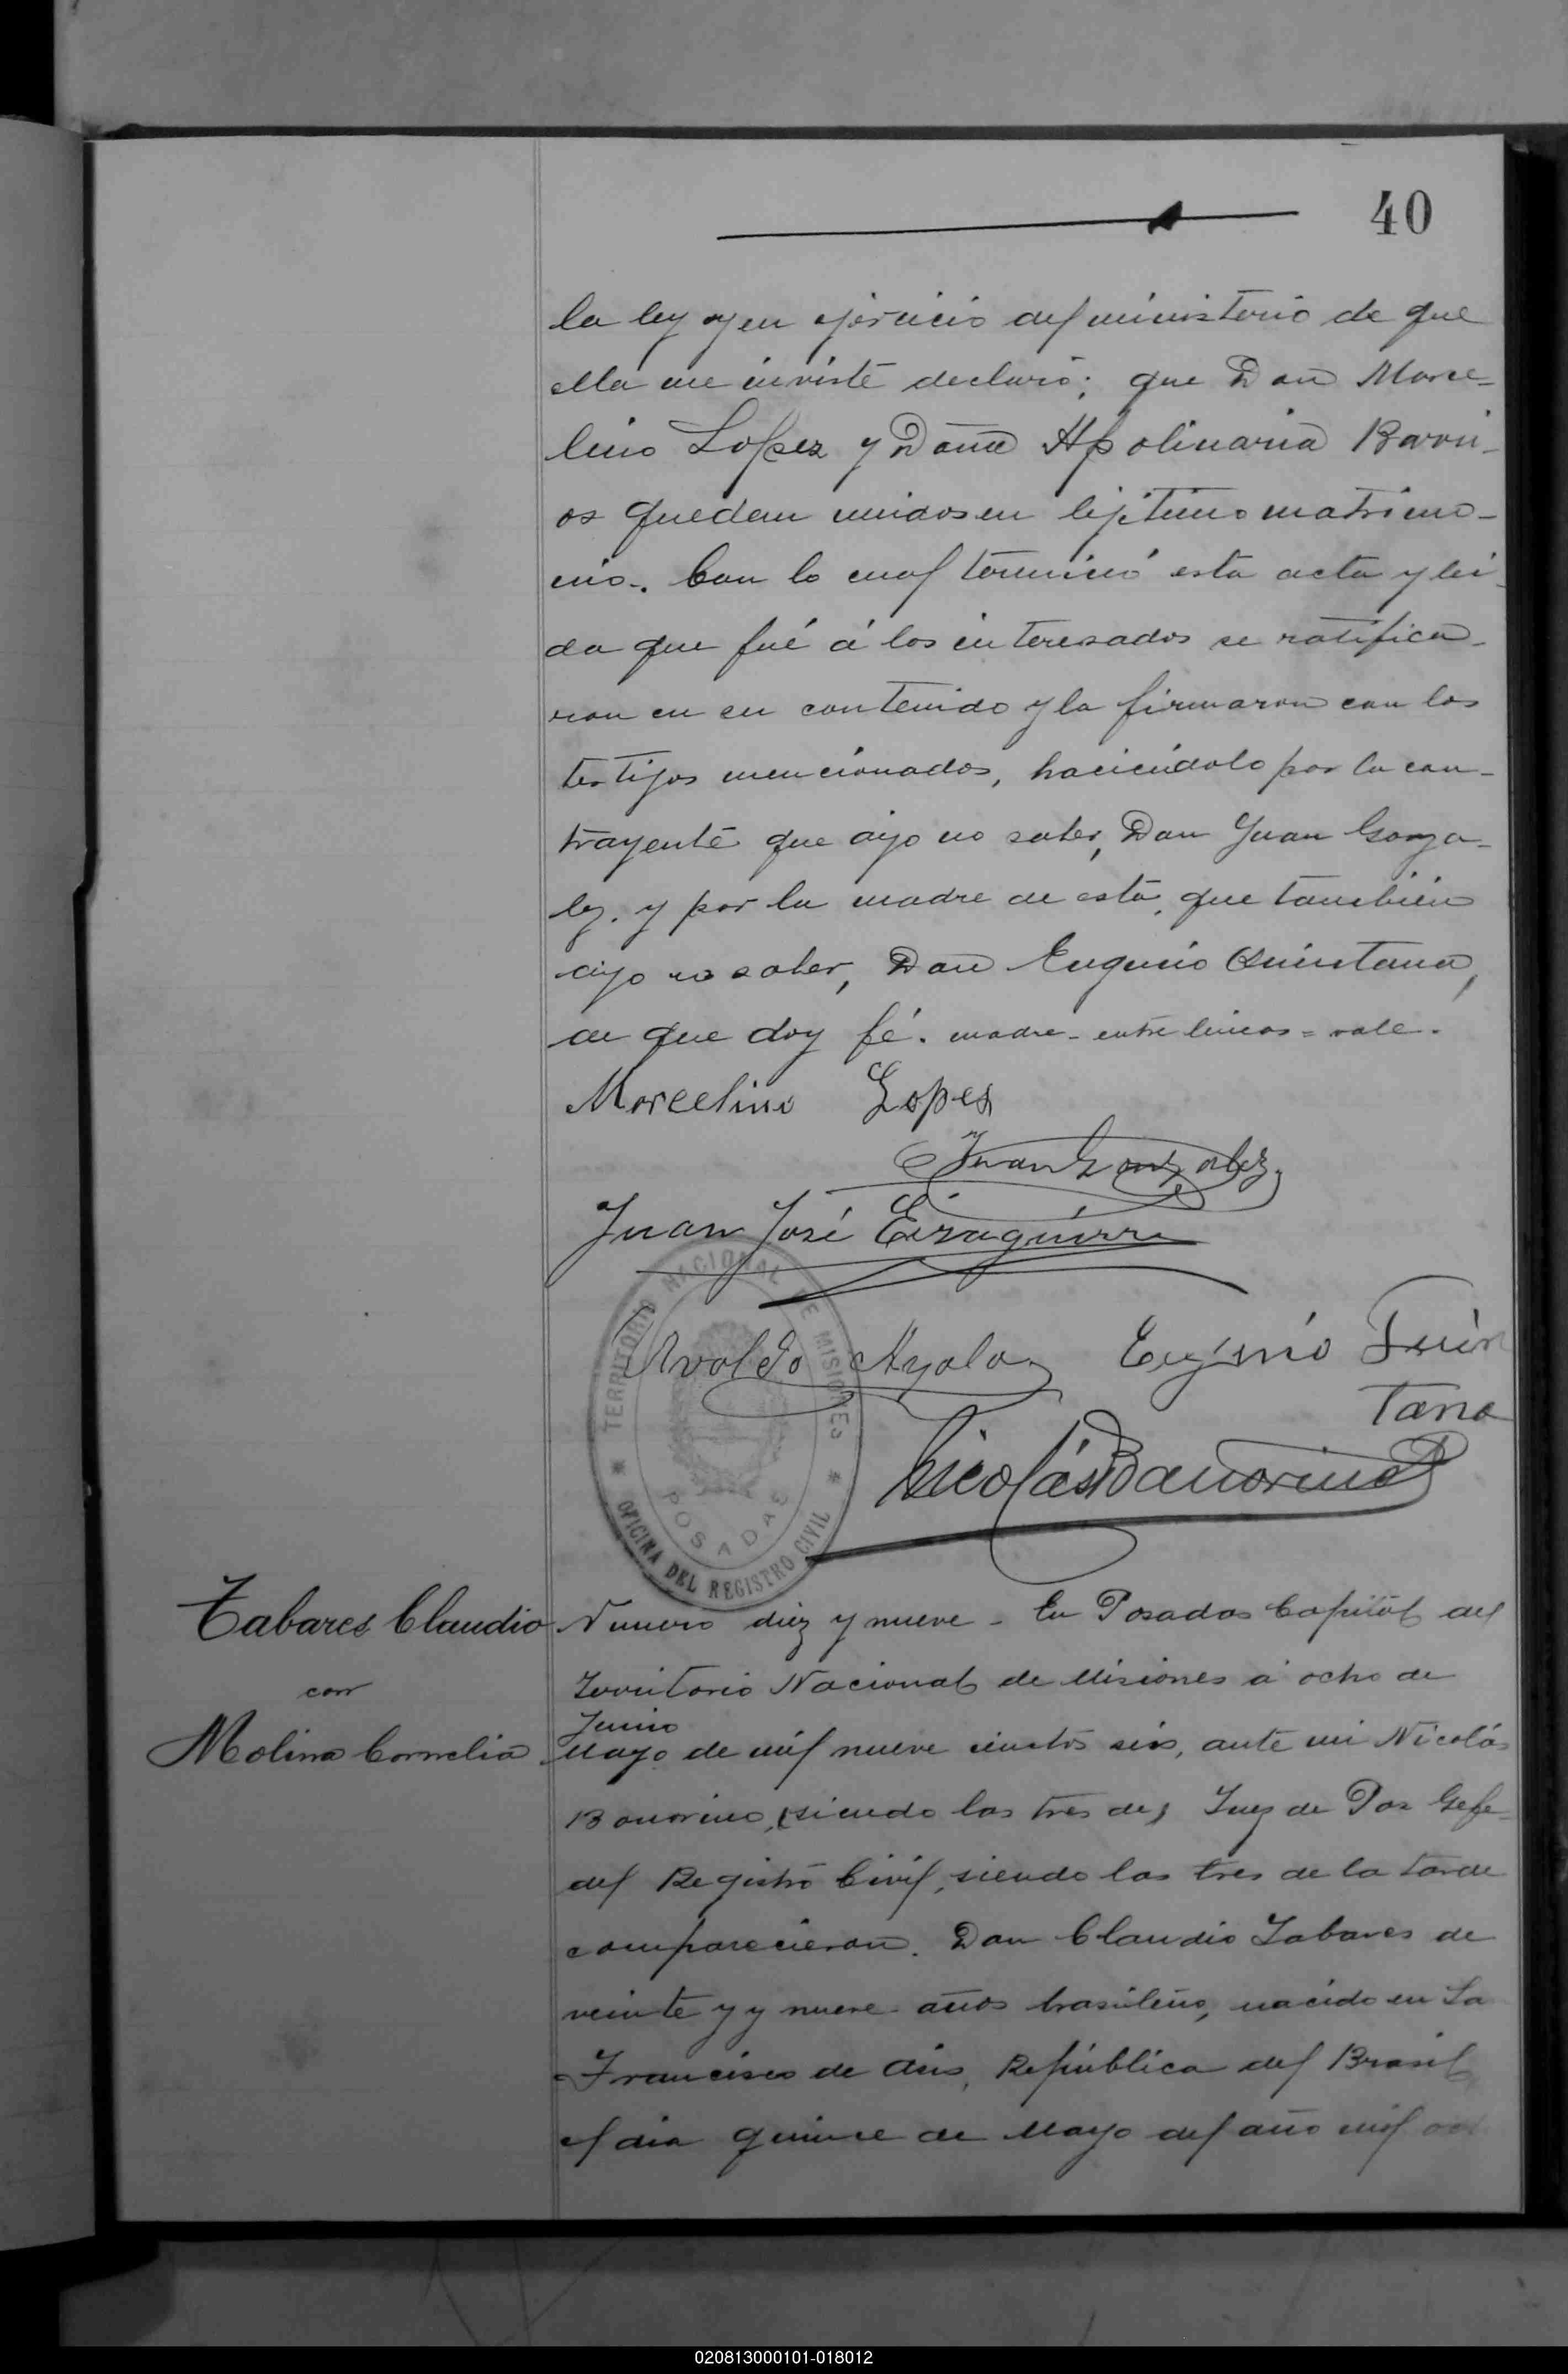 40
la ley y en ejercicio del ministerio de que
ella me inviste declaro; que Don Marce-
lino Lopez y Doña Apolinaria Barri-
os quedan unidos en lejitimo matrimo-
nio. Con lo cual terminó esta acta y lei-
da que fué á los interesados se ratifica-
ron en su contenido y la firmaron con los
testigos mencionados, haciéndolo por la con-
trayente que dijo no saber, Don Juan Gonza-
lez. y por la madre de esta, que también
dijo no saber, Don Eugenio Quintana,
de que doy fé. madre - entre lineas = vale.
Marcelino Lopes
Juan Gonzalez
Juan José Eizaguirre
Ayala Eugenio Quin
tana
Nicolás Bonorino
TERRITORIO NACIONAL DE MISIONES
POSADAS
OFICINA DEL REGISTRO CIVIL
Tabares Claudio
con
Molina Cornelia
Numero diez y nueve - En Posadas Capital del
Territorio Nacional de Misiones á ocho de
Junio
Mayo de mil nueve cientos seis, ante mi Nicolás
Bonorino, (siendo las tres de) Juez de Paz Gefe
del Registro Civil, siendo las tres de la tarde
comparecieron. Don Claudio Tabares de
veinte y y nueve años brasileño, nacido en Sa
Francisco de Asis, República del Brasil,
el dia quince de Mayo del año mil
020813000101-018012